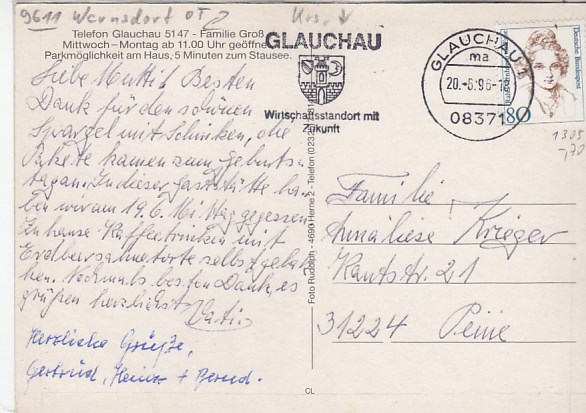 9611 Wernsdorf OT
Telefon Glauchau 5147 - Familie Groß
Mittwoch – Montag ab 11.00 Uhr geöffne
Parkmöglichkeit am Haus, 5 Minuten zum Stausee.
GLAUCHAU
Wirtschaftsstandort mit
Zukunft
GLAUCHAU 1
ma
20.-6.96-1
08371
Deutsche Bundespost
80
1305
-,70
Liebe Mutti! Besten
Dank für den schönen
Spargel mit Schinken, die
Pakete kamen zum Geburts-
tag an. In dieser Gaststätte ha-
ben wir am 19.6. Mittag gegessen
Zu hause Kaffeetrinken mit
Erdbeersahnetorte selbst gebak-
ken. Nochmals besten Dank, es
grüßen herzlichst
Vati
Herzliche Grüße,
Gertrud, Heinz + Bernd.
Foto Rudolph - 4690 Herne 2 - Telefon (023
Familie
Annaliese Krieger
Kantstr. 21
31224 Peine
CL